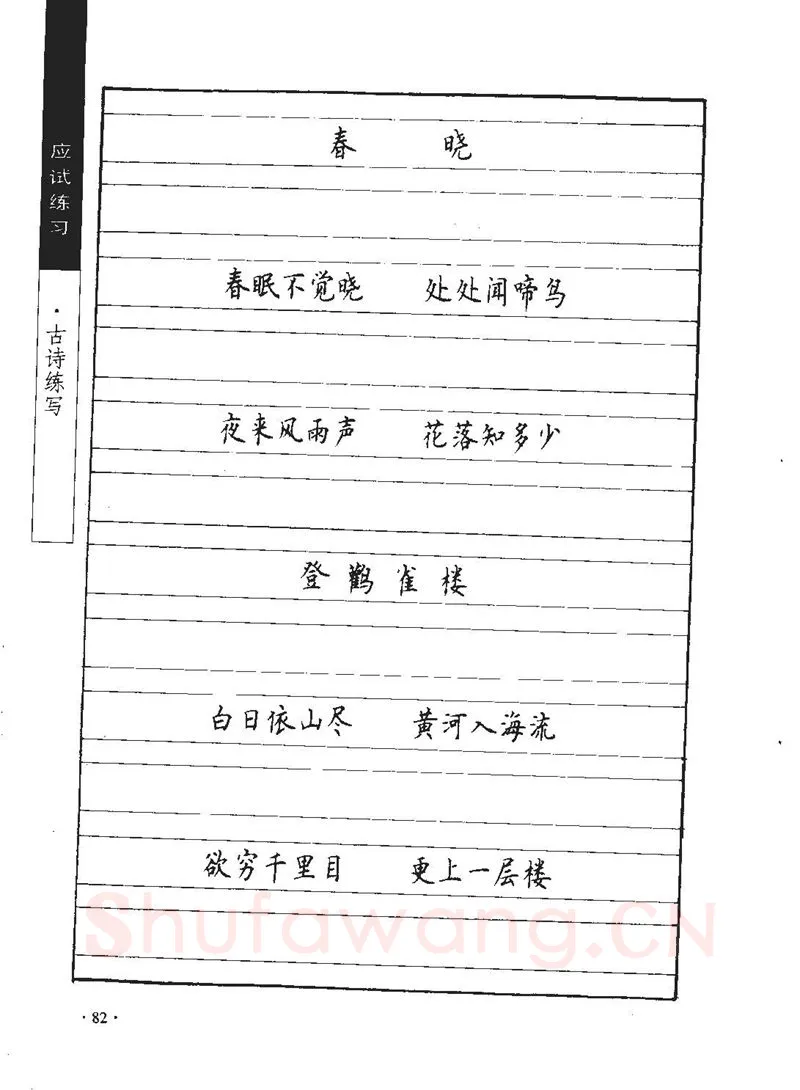 应试练习
·古诗练写
春 晓
春眠不觉晓 处处闻啼鸟
夜来风雨声 花落知多少
登鹳雀楼
白日依山尽 黄河入海流
欲穷千里目 更上一层楼
Shufawang.CN
·82·